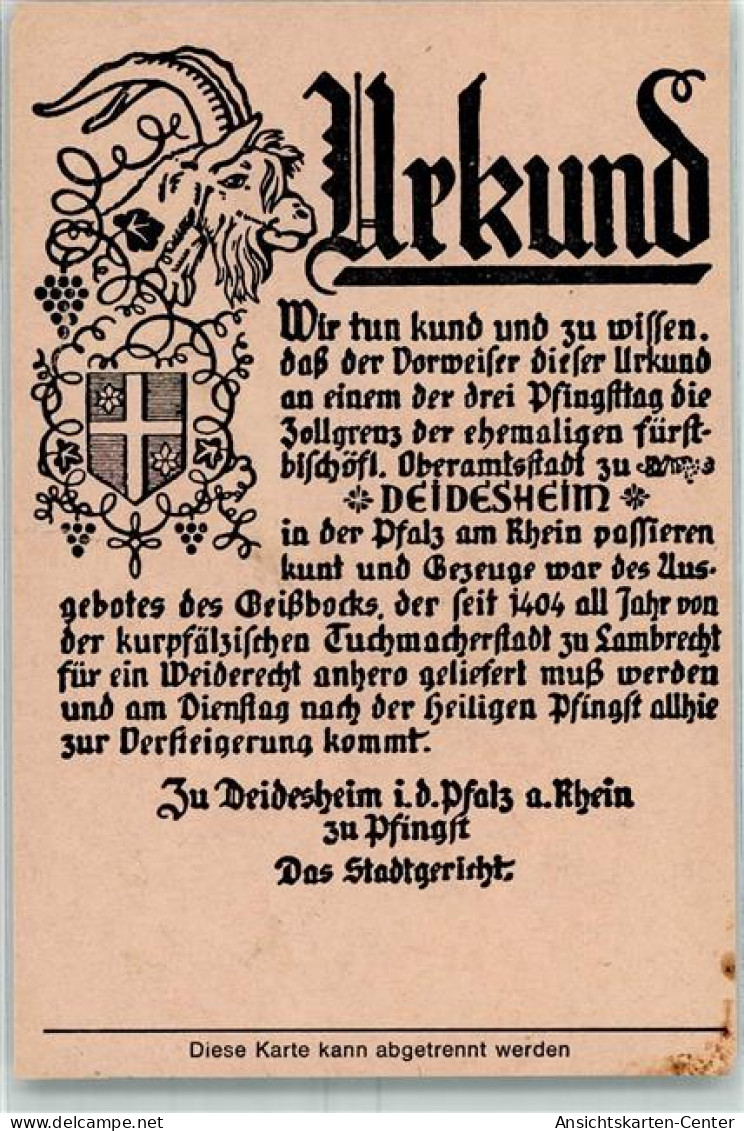 Urkund
Wir tun kund und zu wissen.
daß der Vorweiser dieser Urkund
an einem der drei Pfingsttag die
Zollgrenz der ehemaligen fürst-
bischöfl. Oberamtsstadt zu
DEIDESHEIM
in der Pfalz am Rhein passieren
kunt und Gezeuge war des Aus-
gebotes des Geißbocks, der seit 1404 all Jahr von
der kurpfälzischen Tuchmacherstadt zu Lambrecht
für ein Weiderecht anhero geliefert muß werden
und am Dienstag nach der heiligen Pfingst allhie
zur Versteigerung kommt.
Zu Deidesheim i.d.Pfalz a.Rhein
zu Pfingst
Das Stadtgericht.
Diese Karte kann abgetrennt werden
delcampe.net
Ansichtskarten-Center